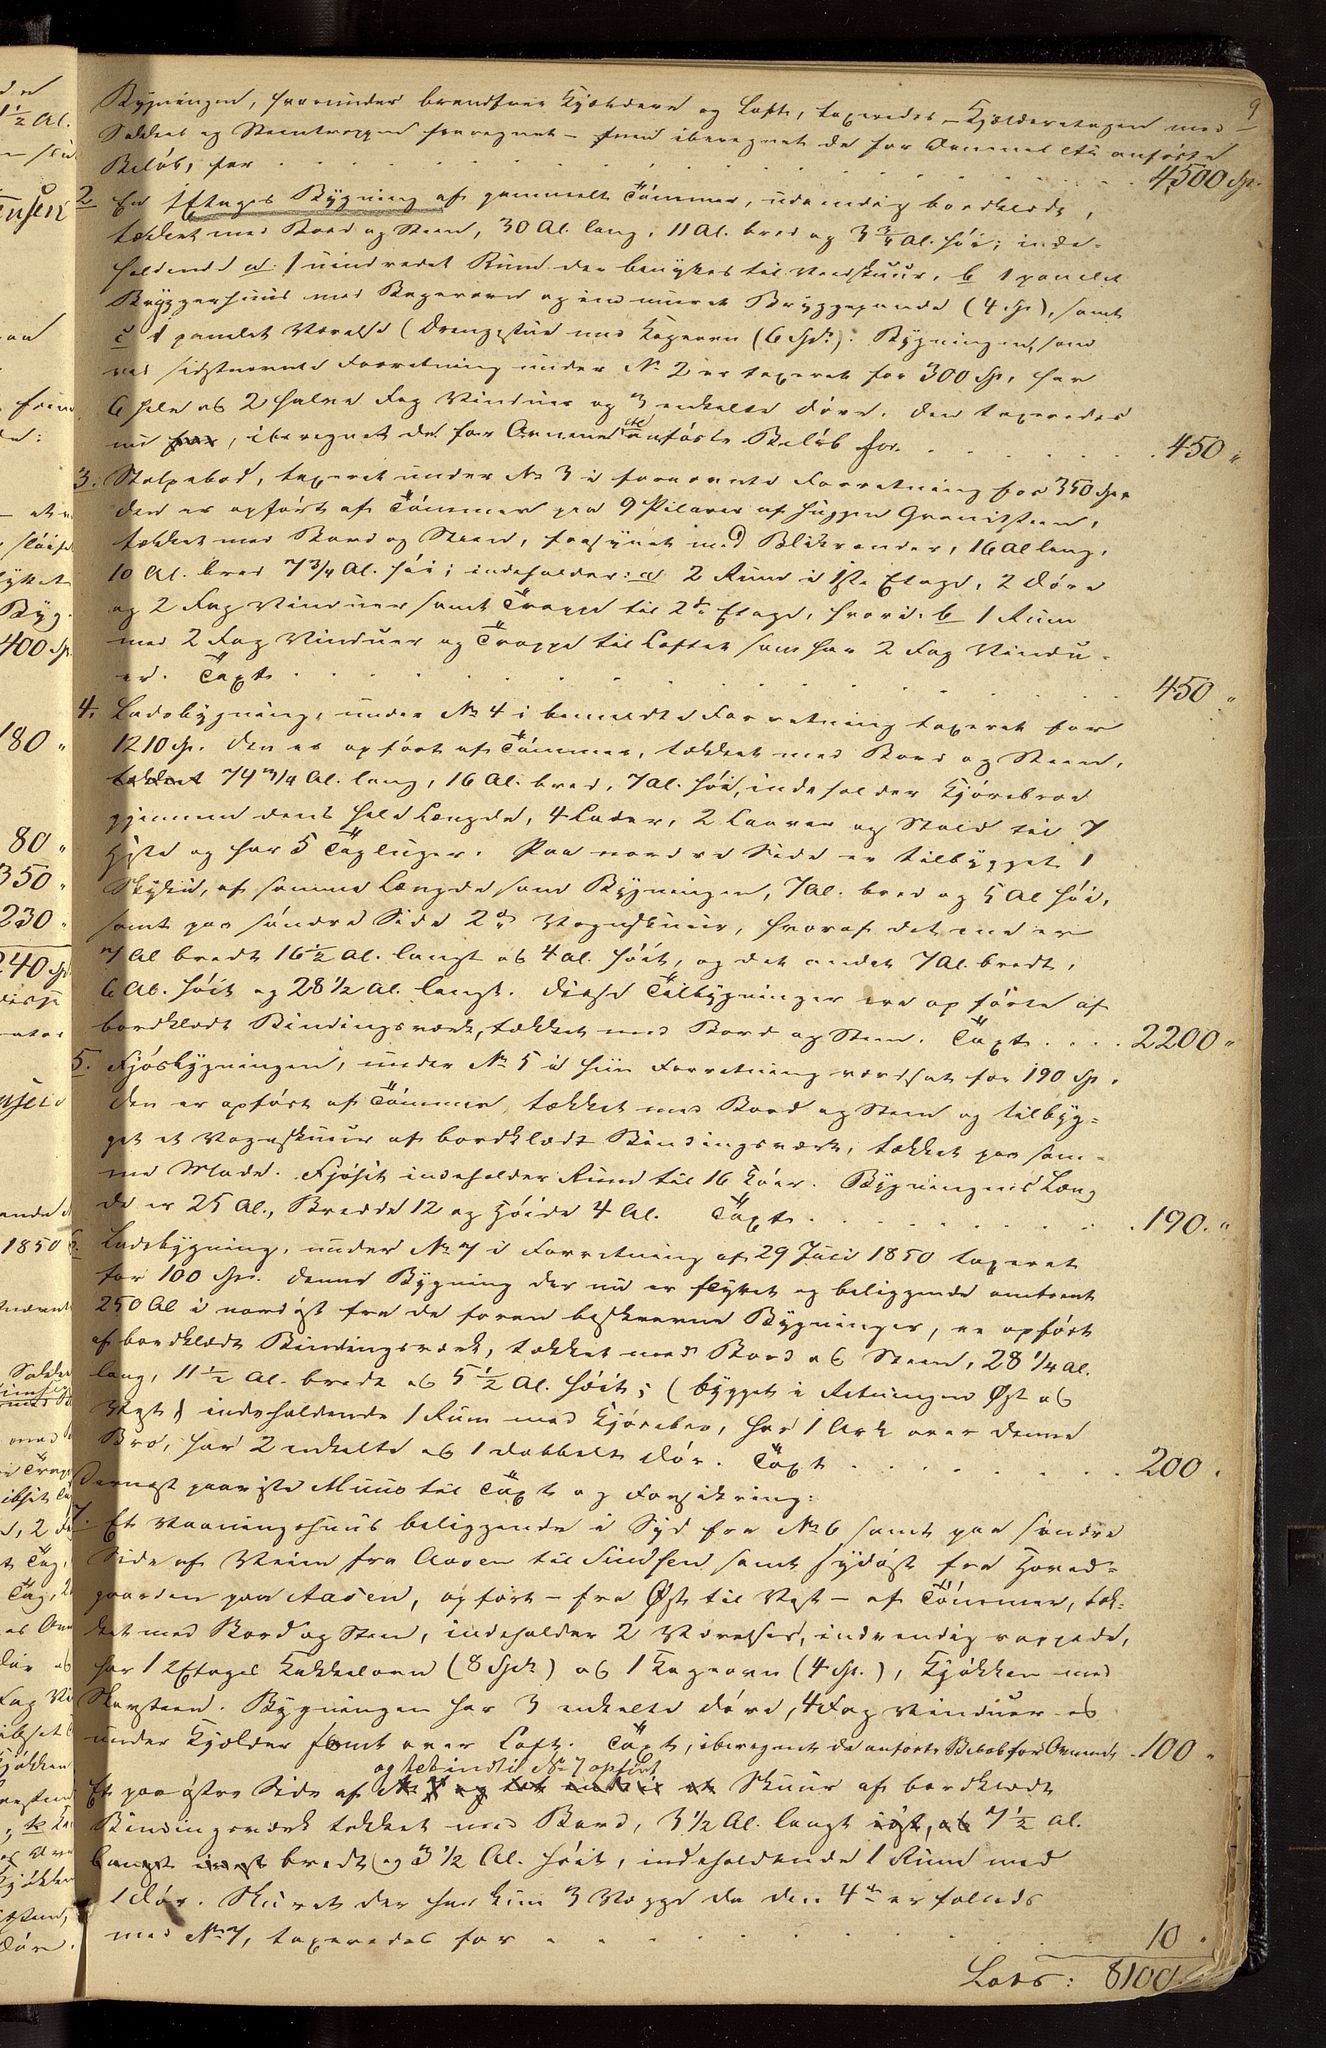 9
Bygningen, herunder brandfrie Kjældere og Loft, taxeredes – Kjælderetagen med
Sokkel og Steentrappen foregnet – iberegnet de for Ovnene &c anførte
Beløb, for . . . 4,500 Sp.
2 En 1 Etages Bygning af gammelt Tømmer, udvendig bordklædt,
tækket med Bord og Steen, 30 Al. lang, 11 Al. bred og 3 3/4 Al. høi; inde-
holdende a: 1 uindredet Rum der benyttes til Vedskuur, b 1 panelet
Bryggerhuus med Bagerovn og indmuret Bryggepande (4 Sp), samt
c 1 panelet Værelse (Drengestue med Kogeovn (6 Spd). Bygningen, som
ved sidstnævnte Forretning under No 2 er taxeret for 300 Sp, har
6 hele og 2 halve Fag Vinduer og 3 enkelte Døre. Den taxeredes
nu for, iberegnet de for Ovnene &c anførte Beløb for . . . 450 "
3. Stolpebod, taxeret under No 3 i forannævnte Forretning for 350 Sp.
Den er opført af Tømmer paa 9 Pilarer af huggen Graniitsteen,
tækket med Bord og Steen, forsynet med Blikrender, 16 Al lang,
10 Al. bred 7 3/4 Al. høi; indeholder: a 2 Rum i 1ste Etage, 2 Døre
og 2 Fag Vinduer samt Trappe til 2den Etage, hvori: b 1 Rum
med 2 Fag Vinduer og Trappe til Loftet som har 2 Fag Vindu-
er. Taxt . . . 450 "
4. Ladebygning, under No 4 i bemeldte Forretning taxeret for
1210 Sp. Den er opført af Tømmer, tækket med Bord og Steen,
tækket 74 3/4 Al. lang, 16 Al. bred, 7 Al. høi, indeholder Kjørebroe
gjennem dens hele Længde, 4 Lader, 2 Laaver og Stald til 7
Heste og har 5 Tagluger. Paa nordre Side er tilbygget 1
Skykje, af samme Længde som Bygningen, 7 Al. bred og 5 Al høi,
samt paa søndre Side 2de Vognskuur, hvoraf det ene er
7 Al bredt 16 1/2 Al. langt og 4 Al. høit, og det andet 7 Al. bredt,
6 Al. høit og 28 1/2 Al. langt. Disse Tilbygninger ere opførte af
bordklædt Bindingsværk, tækket med Bord og Steen. Taxt . . . 2200 "
5. Fjøsbygningen, under No 5 i hiin Forretning værdsat for 190 Sp.
Den er opført af Tømmer, tækket med Bord og Steen og tilbyg-
get et Vognskuur af bordklædt Bindingsværk, tækket paa sam-
me Maade. Fjøset indeholder Rum til 16 Køer. Bygningens Læng
de er 25 Al., Bredde 12 og Høide 4 Al. Taxt . . . 190. "
6. Ladebygning, under No 7 i Forretning af 29 Juli 1850 taxeret
for 100 Sp. Denne Bygning der nu er flyttet og beliggende omtrent
250 Al i nordøst fra de foran beskrevne Bygninger, er opført
af bordklædt Bindingsværk, tækket med Bord og Steen, 28 1/4 Al.
lang, 11 1/2 Al. bredt og 5 1/2 Al. høit; (bygget i Retningen Øst og
Vest) indeholdende 1 Rum med Kjørebro, har 1 Ark over denne
Bro, har 2 enkelte og 1 dobbelt Dør. Taxt . . . 200.
Dernæst paavistes Huus til Taxt og Forsikring:
7. Et Vaaningshuus beliggende i Syd for No 6 samt paa søndre
Side af Veien fra Aasen til Sundsen samt sydøst fra Hoved-
gaarden paa Aasen, opført – fra Øst til Vest – af Tømmer, tæk-
ket med Bord og Steen, indeholder 2 Værelser, indvendig rappede,
har 1 2Etages Kakkelovn (8 Spd) og 1 Kogeovn (4 Sp.), Kjøkken med
Skorsteen. Bygningen har 3 enkelte Døre, 4 Fag Vinduer og
under Kjælder samt over Loft. Taxt, iberegnet de anførte Beløb for Ovnene . 100 "
og tet indtil No 7 opført
Et paa østre Side af No 7 og tet indtil et Skuur af bordklædt
Bindingsværk tækket med Bord, 3 1/2 Al. langt i øst, og 7 1/2 Al.
langt i vest bredt og 3 1/2 Al. høit, indeholdende 1 Rum med
1 Dør. Skuret der har kun 3 Vægge da den 4de er fælleds
med No 7, taxeredes for . . . 10 "
Lats: 8100